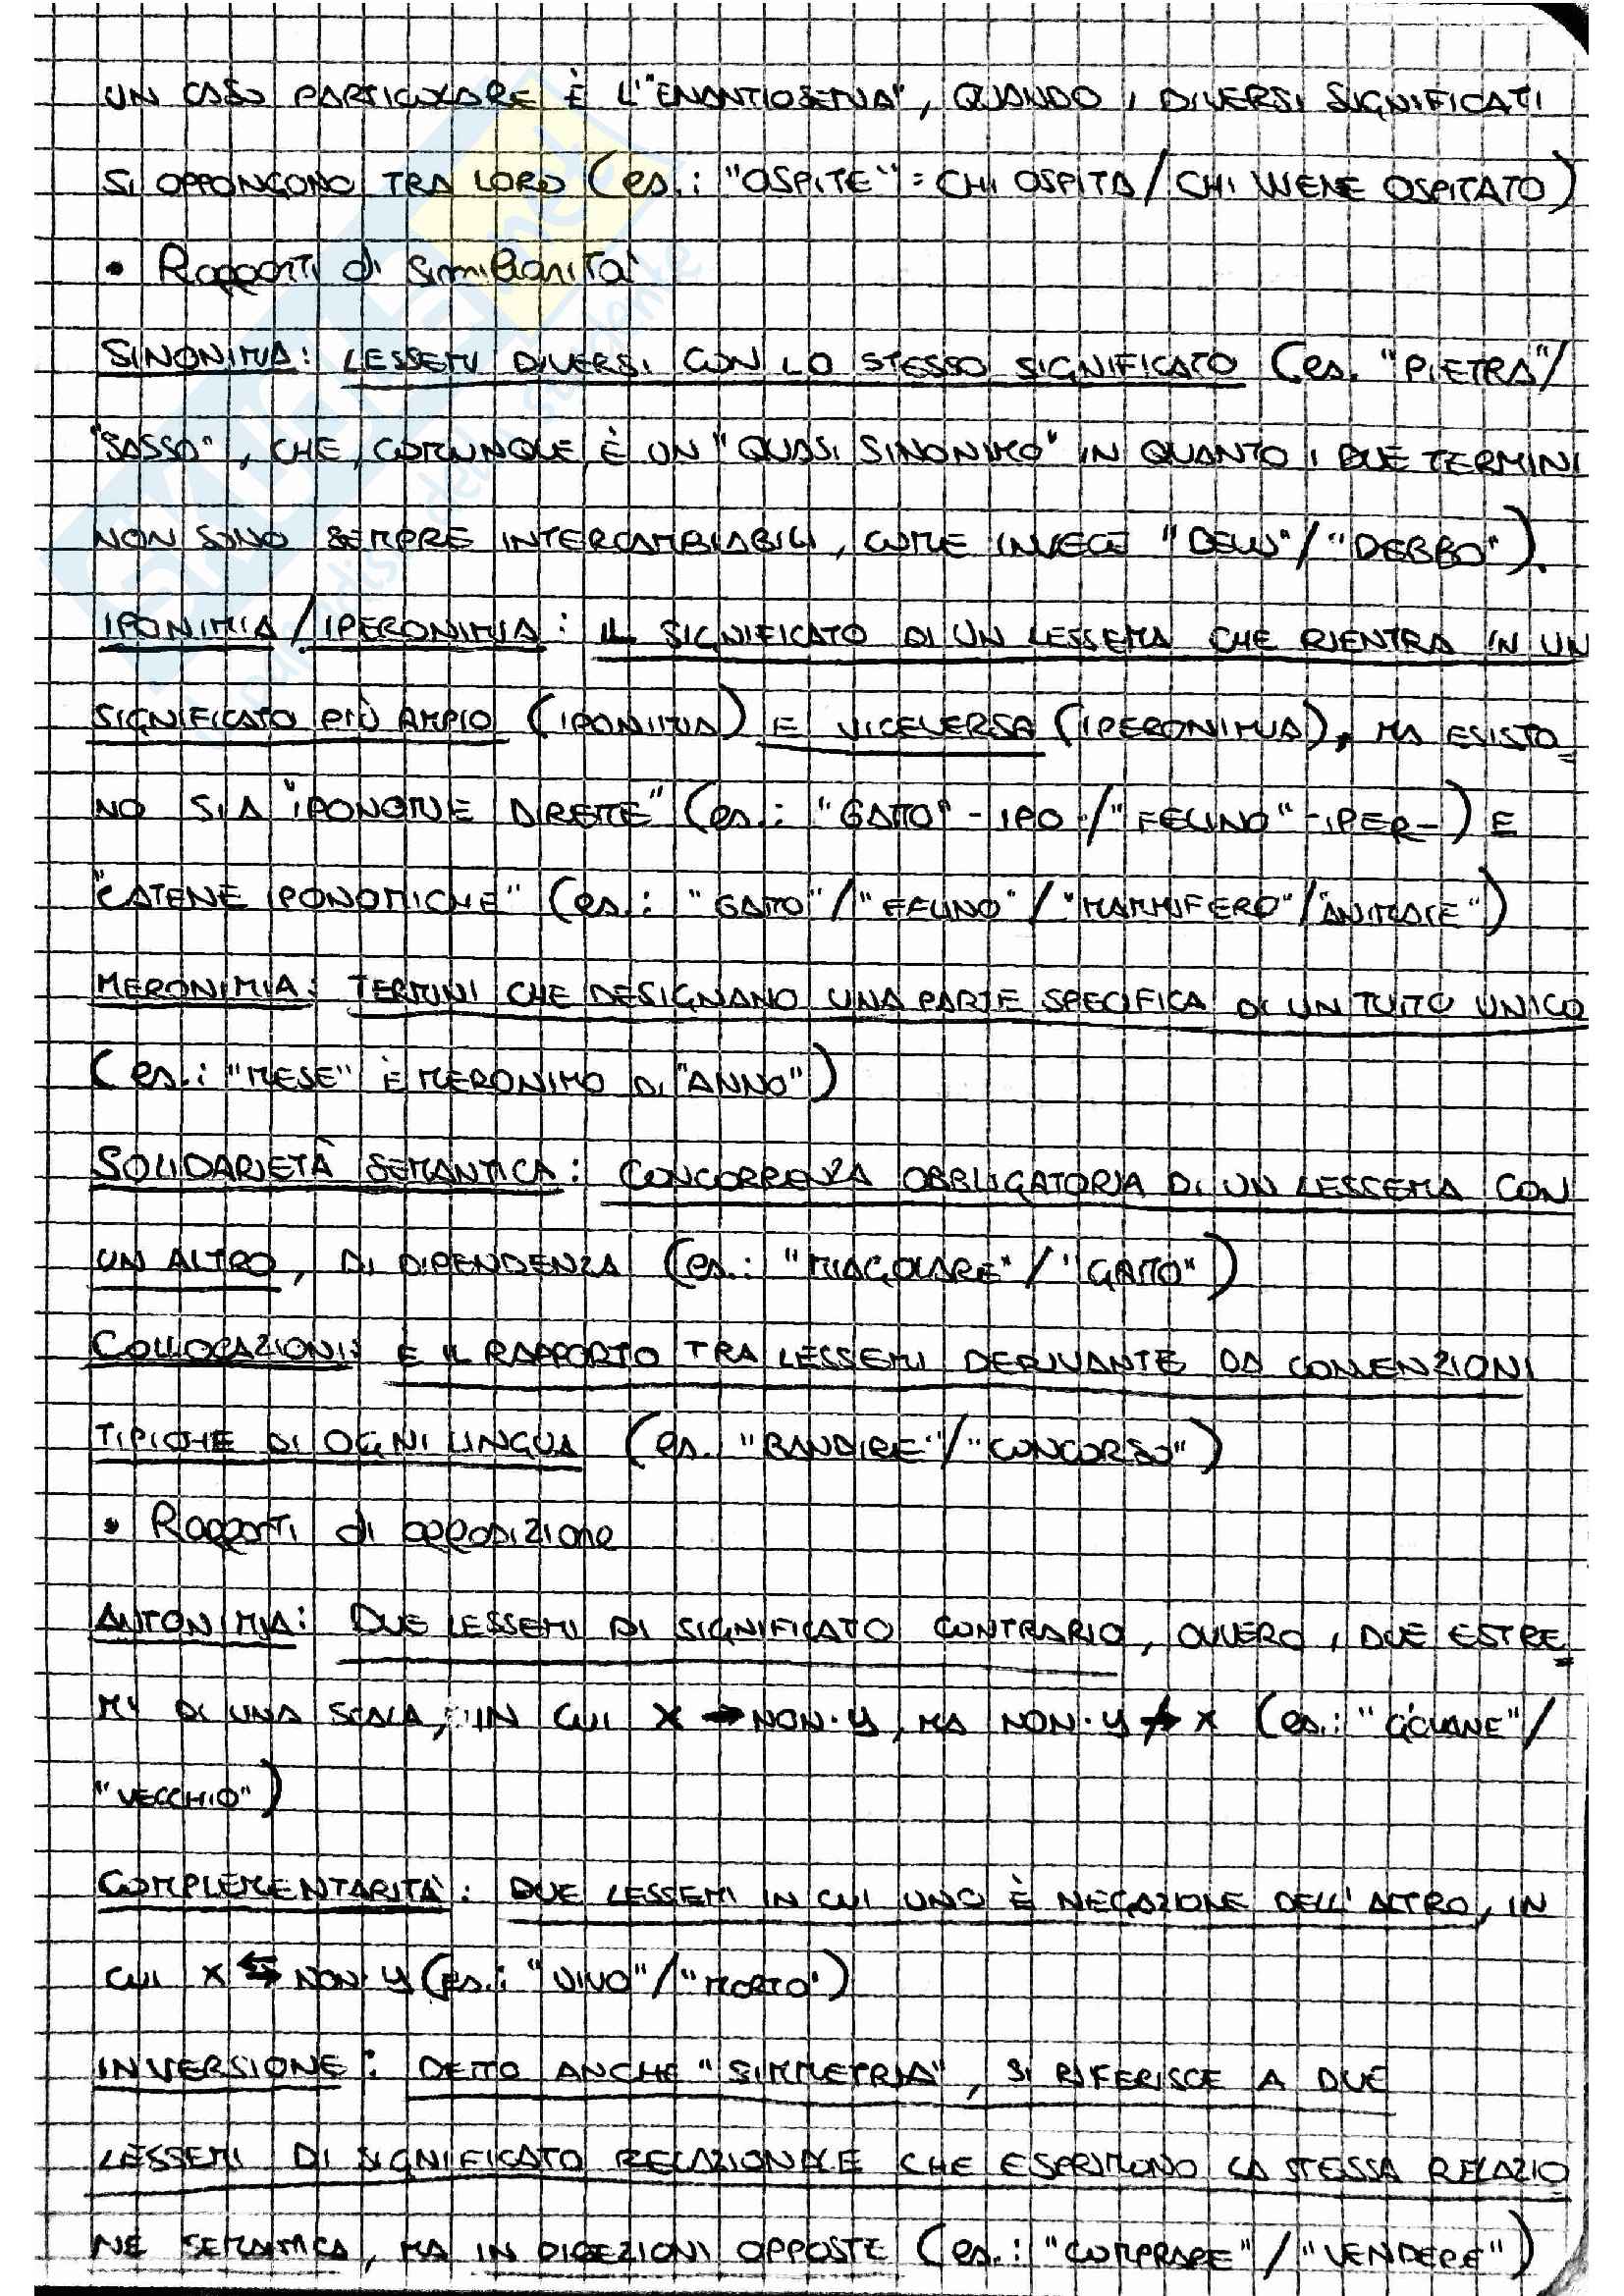 UN CASO PARTICOLARE È L'"ENANTIOSEMIA", QUANDO I DIVERSI SIGNIFICATI
SI OPPONGONO TRA LORO (es.: "OSPITE" = CHI OSPITA / CHI VIENE OSPITATO)
• Rapporti di similarità
SINONIMIA: LESSEMI DIVERSI CON LO STESSO SIGNIFICATO (es. "PIETRA"/
"SASSO", CHE, COMUNQUE, È UN "QUASI SINONIMO" IN QUANTO I DUE TERMINI
NON SONO SEMPRE INTERCAMBIABILI, COME INVECE "DEVO"/"DEBBO").
IPONIMIA/IPERONIMIA: IL SIGNIFICATO DI UN LESSEMA CHE RIENTRA IN UN
SIGNIFICATO PIÙ AMPIO (IPONIMIA) E VICEVERSA (IPERONIMIA), MA ESISTO=
NO SIA "IPONOMIE DIRETTE" (es.: "GATTO" - IPO -/"FELINO" - IPER-) E
"CATENE IPONOMICHE" (es.: "GATTO"/"FELINO"/"MAMMIFERO"/"ANIMALE")
MERONIMIA: TERMINI CHE DESIGNANO UNA PARTE SPECIFICA DI UN TUTTO UNICO
(es.: "MESE" È MERONIMO DI "ANNO")
SOLIDARIETÀ SEMANTICA: CONCORRENZA OBBLIGATORIA DI UN LESSEMA CON
UN ALTRO, DI DIPENDENZA (es.: "MIAGOLARE"/"GATTO")
COLLOCAZIONI: È IL RAPPORTO TRA LESSEMI DERIVANTE DA CONVENZIONI
TIPICHE DI OGNI LINGUA (es. "BANDIRE"/"CONCORSO")
• Rapporti di opposizione
ANTONIMIA: DUE LESSEMI DI SIGNIFICATO CONTRARIO, OVVERO, DUE ESTRE=
MI DI UNA SCALA, IN CUI X → NON-Y, MA NON-Y ↛ X (es.: "GIOVANE"/
"VECCHIO")
COMPLEMENTARITÀ: DUE LESSEMI IN CUI UNO È NEGAZIONE DELL'ALTRO, IN
CUI X ⇆ NON-Y (es.: "VIVO"/"MORTO")
INVERSIONE: DETTO ANCHE "SIMMETRIA", SI RIFERISCE A DUE
LESSEMI DI SIGNIFICATO RELAZIONALE CHE ESPRIMONO LA STESSA RELAZIO
NE SEMANTICA, MA IN DIREZIONI OPPOSTE (es.: "COMPRARE"/"VENDERE")